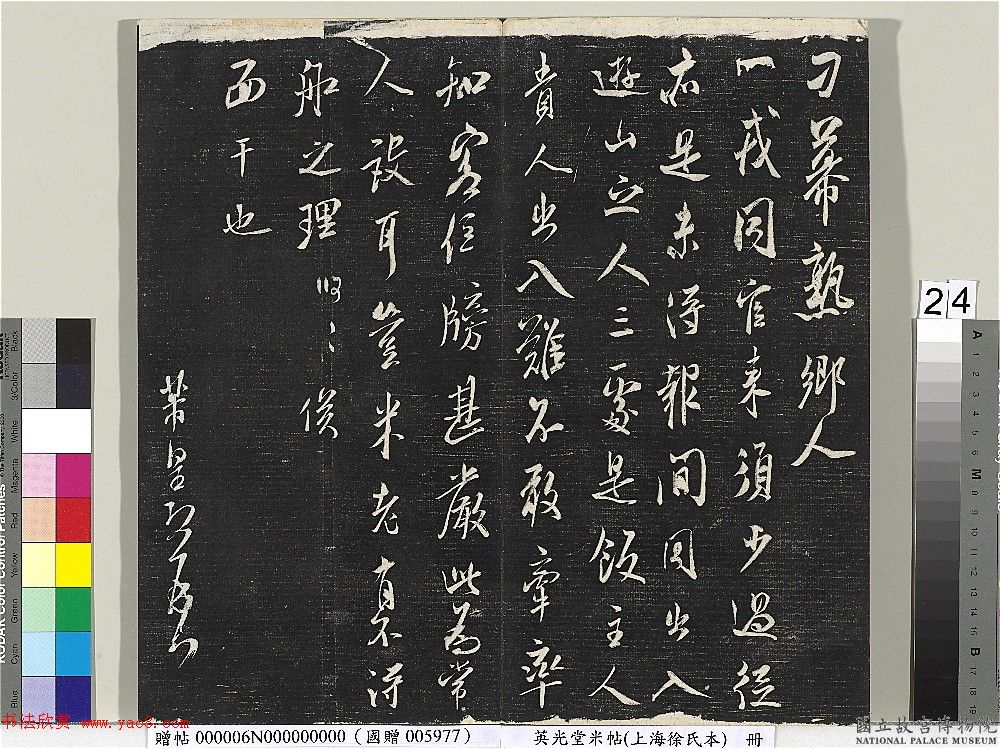 刁幕熟鄉人
一戎同官来須少過從
亦是未得報間同出入
遊山六人三處是飯主人
貴人出入難不敢牽率
知客位牓甚嚴此為常
人設耳豈米老有不得
船之理呵呵俟
面干也
芾皇恐
24
Black
3/Color
White
Magenta
Red
Yellow
Green
Cyan
Blue
KODAK Color Control Patches
A
1
2
3
4
5
6
M
8
9
10
11
12
13
14
15
B
17
18
19
书法欣赏 www.yac8.com
贈帖 000006N000000000 (國贈 005977)
英光堂米帖(上海徐氏本) 冊
國立故宮博物院
NATIONAL PALACE MUSEUM